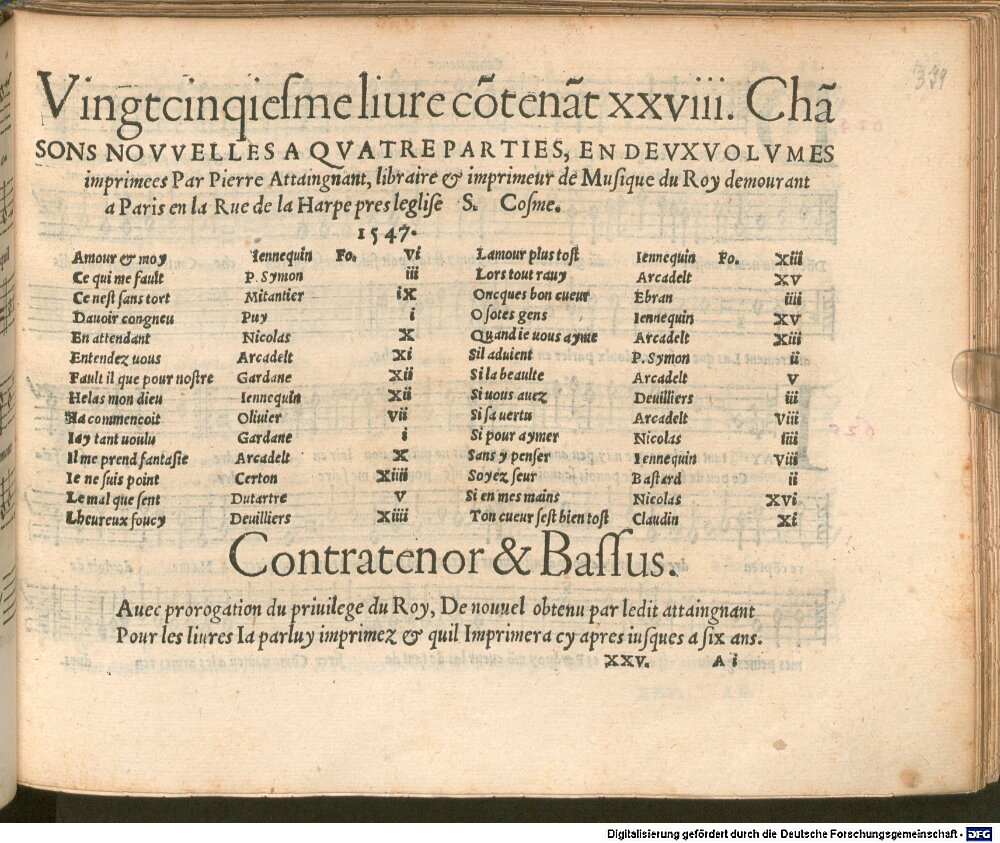 399
Vingtcinqiesme liure cõtenãt xxviii. Chã
SONS NOVVELLES A QVATRE PARTIES, EN DEVX VOLVMES
imprimees Par Pierre Attaingnant, libraire & imprimeur de Musique du Roy demourant
a Paris en la Rue de la Harpe pres leglise S. Cosme.
1547.
Amour & moy Iennequin Fo. vi
Ce qui me fault P. Symon iii
Ce nest sans tort Mitantier ix
Dauoir congneu Puy i
En attendant Nicolas X
Entendez uous Arcadelt Xi
Fault il que pour nostre Gardane Xii
Helas mon dieu Iennequin Xii
Ia commencoit Oliuier Vii
Iay tant uoulu Gardane i
Il me prend fantasie Arcadelt X
Ie ne suis point Certon Xiiii
Le mal que sent Dutartre V
Lheureux soucy Deuilliers Xiiii
Lamour plus tost Iennequin Fo. Xiii
Lors tout rauy Arcadelt XV
Oncques bon cueur Ebran iiii
O sotes gens Iennequin XV
Quand ie uous ayme Arcadelt Xiii
Sil aduient P. Symon ii
Si la beaulte Arcadelt V
Si uous auez Deuilliers iii
Si sa uertu Arcadelt Viii
Si pour aymer Nicolas iiii
Sans y penser Iennequin Viii
Soyez seur Bastard ii
Si en mes mains Nicolas XVi.
Ton cueur sest bien tost Claudin Xi
Contratenor & Bassus.
Auec prorogation du priuilege du Roy, De nouuel obtenu par ledit attaingnant
Pour les liures Ia par luy imprimez & quil Imprimera cy apres iusques a six ans.
XXV. A i
Digitalisierung gefördert durch die Deutsche Forschungsgemeinschaft - DFG